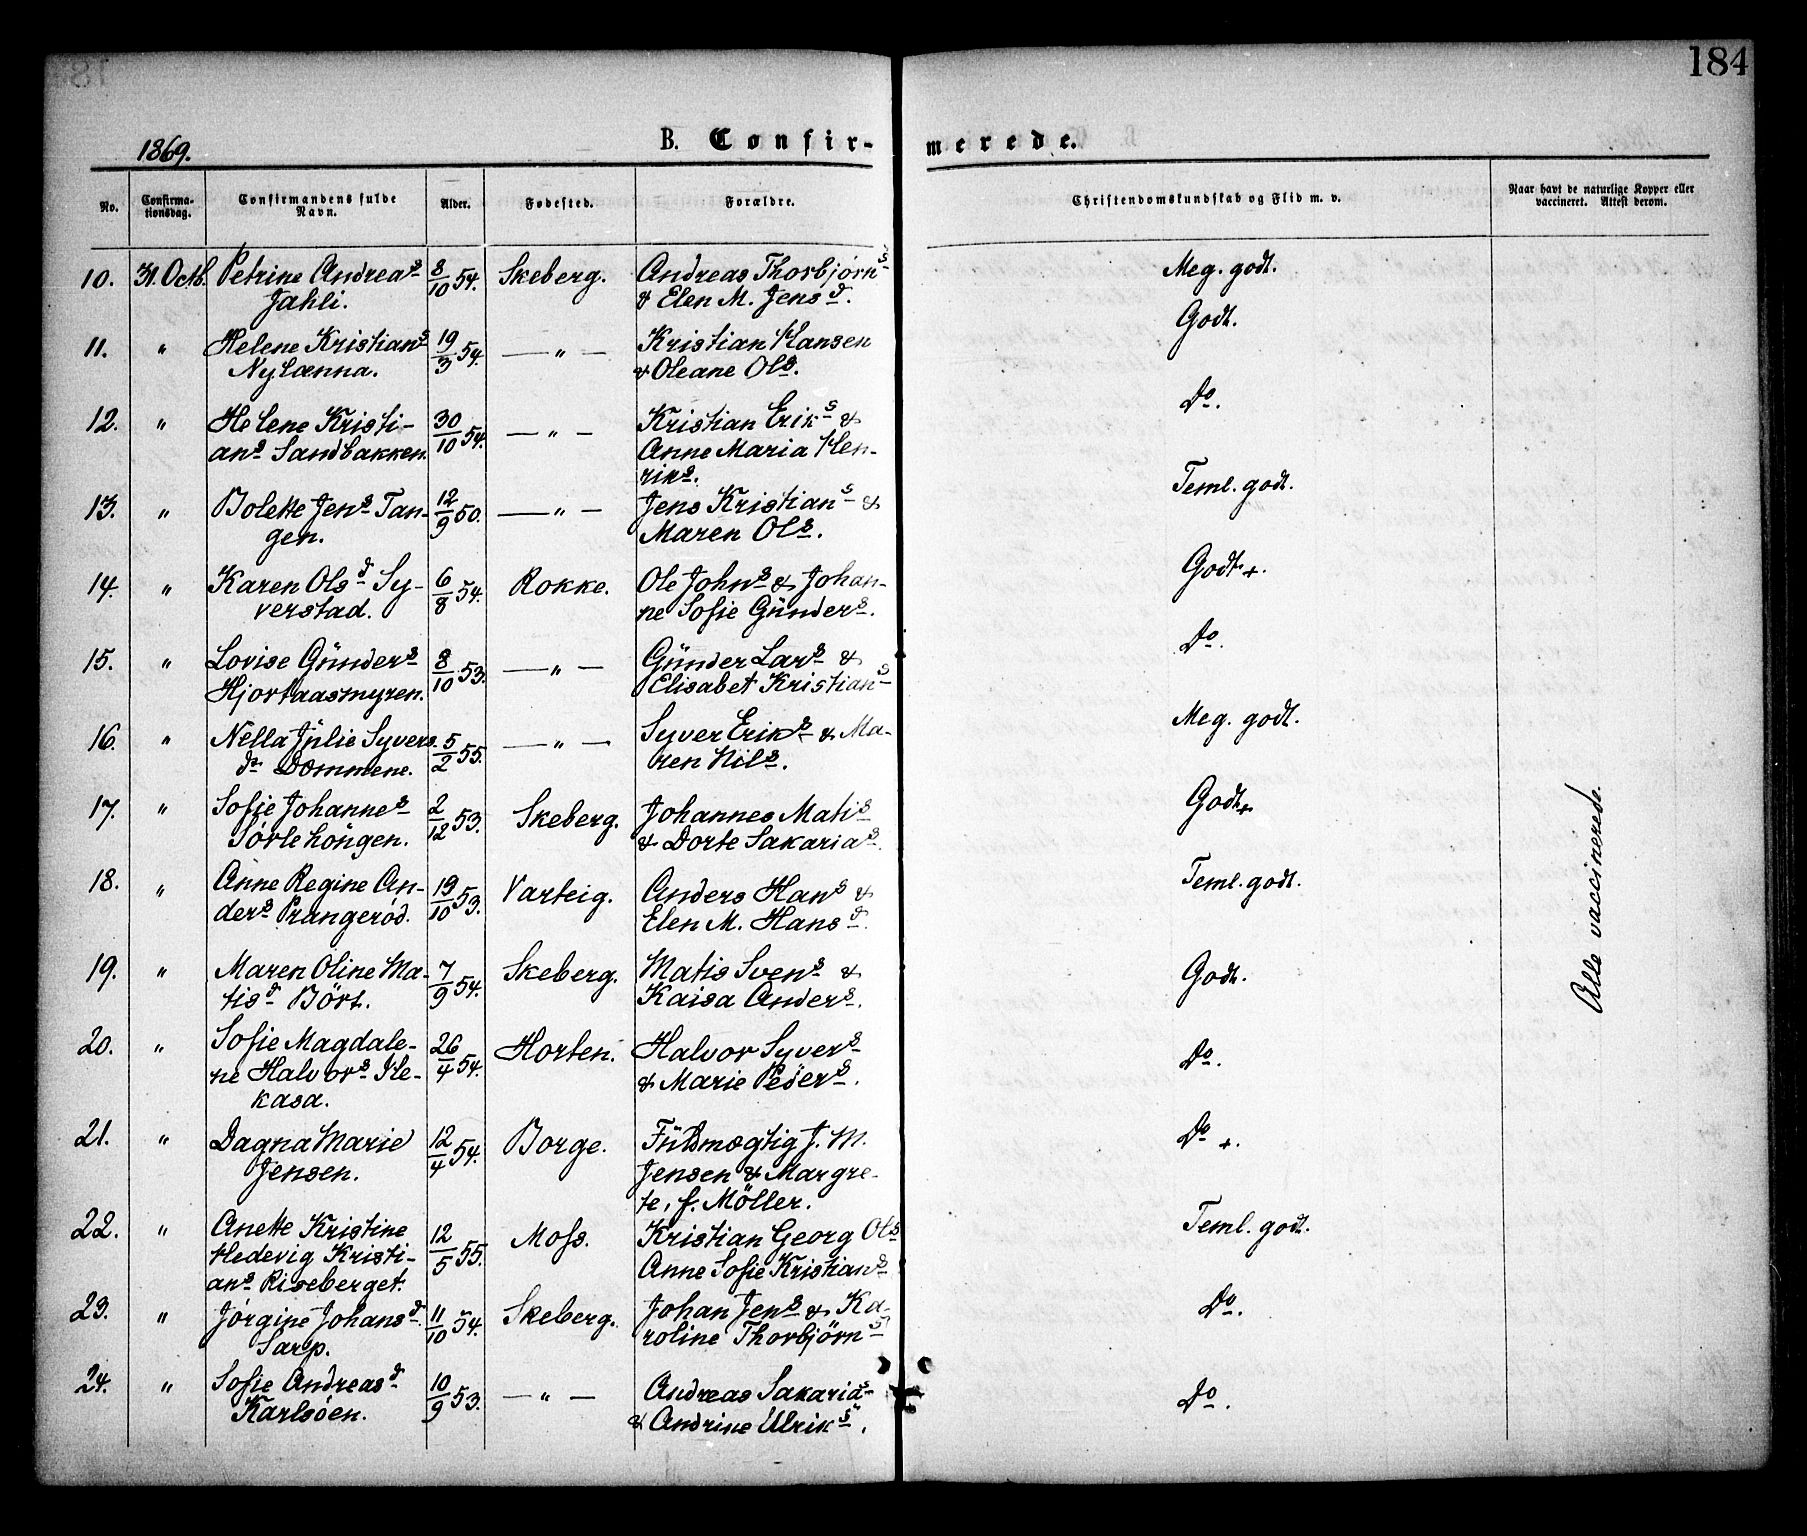 184
1869.
B. Confir-
merede.
No.
Confirma-
tionsdag.
Confirmandens fulde
Navn.
Alder.
Fødested.
Forældre.
Christendomskundskab og Flid m. v.
Naar havt de naturlige Kopper eller
vaccineret. Attest derom.
10. 31. Octb. Petrine Andreas 8/10 54. Skeberg. Andreas Thorbjørns Meg. godt.
Jahli. & Elen M. Jensd.
11. " Helene Kristians 19/3 54. — " — Kristian Hansen Godt.
Nylænna. & Oleane Ols.
12. " Helene Kristi- 30/10 54. — " — Kristian Eriks & Do.
ans Sandbakken. Anne Maria Hen-
riks.
13. " Bolette Jens Tan- 12/9 50. — " — Jens Kristians & Teml. godt.
gen. Maren Ols.
14. " Karen Olsd Sy- 6/8 54. Rokke. Ole Johns & Johan- Godt+.
verstad. ne Sofie Günders.
15. " Lovise Günders 8/10 53. — " — Günder Lars & Do.
Hjortaasmyren. Elisabet Kristians
16. " Nella Jülie Syvers 5/2 55. — " — Syver Eriks & Ma- Meg. godt.
dr Dommene. ren Nils.
17. " Sofie Johannes 2/12 53. Skeberg. Johannes Matis Godt+
Sørlehöngen. & Dorte Sakarias.
18. " Anne Regine An- 19/10 53. Varteig. Anders Hans & Teml. godt.
ders Prangerød. Elen M. Hansd.
19. " Maren Oline Ma- 7/9 54. Skeberg. Matis Svens & Godt.
tisd Bört. Kaisa Anders.
20. " Sofie Magdale- 26/4 54. Horten. Halvor Syvers Do.
ne Halvors Kle- & Marie Peders.
kasa.
21. " Dagna Marie 12/4 54. Borge. Füldmægtig J. M. Do +.
Jensen. Jensen & Margre-
te, f. Möller.
22. " Anette Kristine 12/5 55. Moss. Kristian Georg Ols Teml. godt.
Hedevig Kristi- Anne Sofie Kristians
ans Riseberget.
23. " Jørgine Johansd. 11/10 54. Skeberg. Johan Jens & Ka- Do.
Sarp. roline Thorbjørns
24. " Sofie Andreasd 10/9 53. — " — Andreas Sakarias Do.
Karlsöen. & Andrine Ulriks.
Alle vaccinerede.